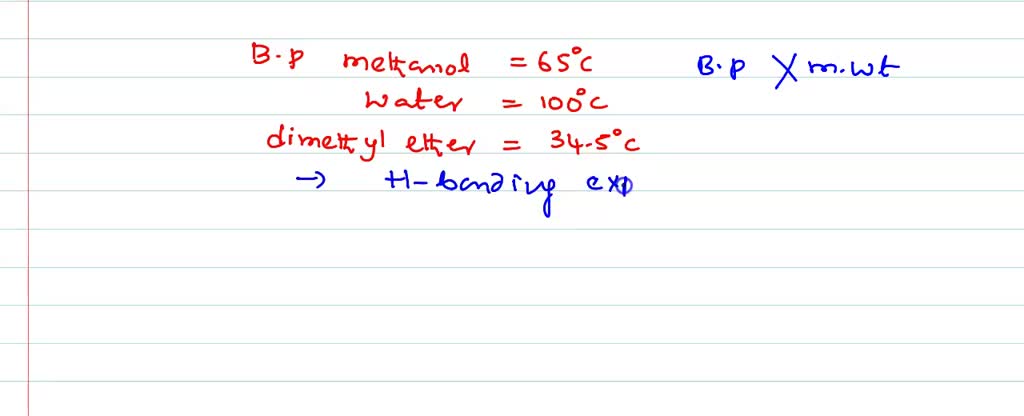 B.p methanol = 65°C B.p X m.wt
water = 100°C
dimethyl ether = 34.5°C
→ H-bonding exp